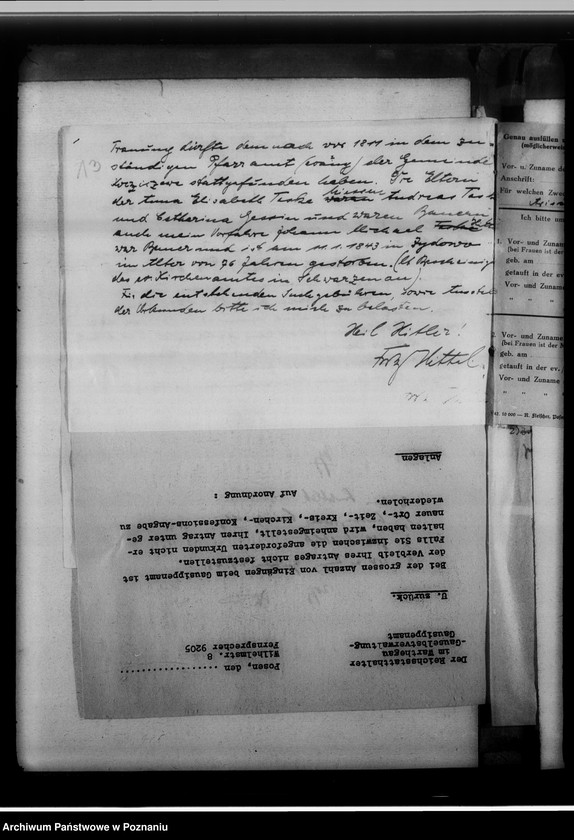 13
Trauung dürfte demnach vor 1811 in dem zu-
ständigen Pfarramt der Gemeinde
stattgefunden haben. Die Eltern
der Anna Elisabeth Teske waren Andreas Teske
und Catharina und waren Bauern
auch mein Vorfahre Johann Michael
war Bauer und ist am 11.1.1843 in Zydowo
im Alter von 76 Jahren gestorben. (lt Bescheinig
des ev. Kirchenamtes in Schwarzenau).
Für die entstehenden Suchgebühren sowie
der Urkunden bitte ich mich zu belasten.
Heil Hitler!
Fritz Hittel.
Genau ausfüllen
(möglicherweise
Vor- u. Zuname
Anschrift:
Für welchen
Ich bitte um
1. Vor- und Zuname
(bei Frauen ist der
geb. am
getauft in der ev.
Vor- und Zuname
2. Vor- und Zuname
(bei Frauen ist der
geb. am
getauft in der ev.
Vor- und Zuname
Der Reichsstatthalter
im Warthegau
-Gauselbstverwaltung-
Gausippenamt
Posen, den ..................
Wilhelmstr. 8
Fernsprecher 9205
U. zurück.
Bei der grossen Anzahl von Eingängen beim Gausippenamt ist
der Verbleib Ihres Antrages nicht festzustellen.
Falls Sie inzwischen die angeforderten Urkunden nicht er-
halten haben, wird anheimgestellt, Ihren Antrag unter ge-
nauer Ort-, Zeit-, Kreis-, Kirchen-, Konfessions-Angabe zu
wiederholen.
Auf Anordnung :
Anlagen
Archiwum Państwowe w Poznaniu